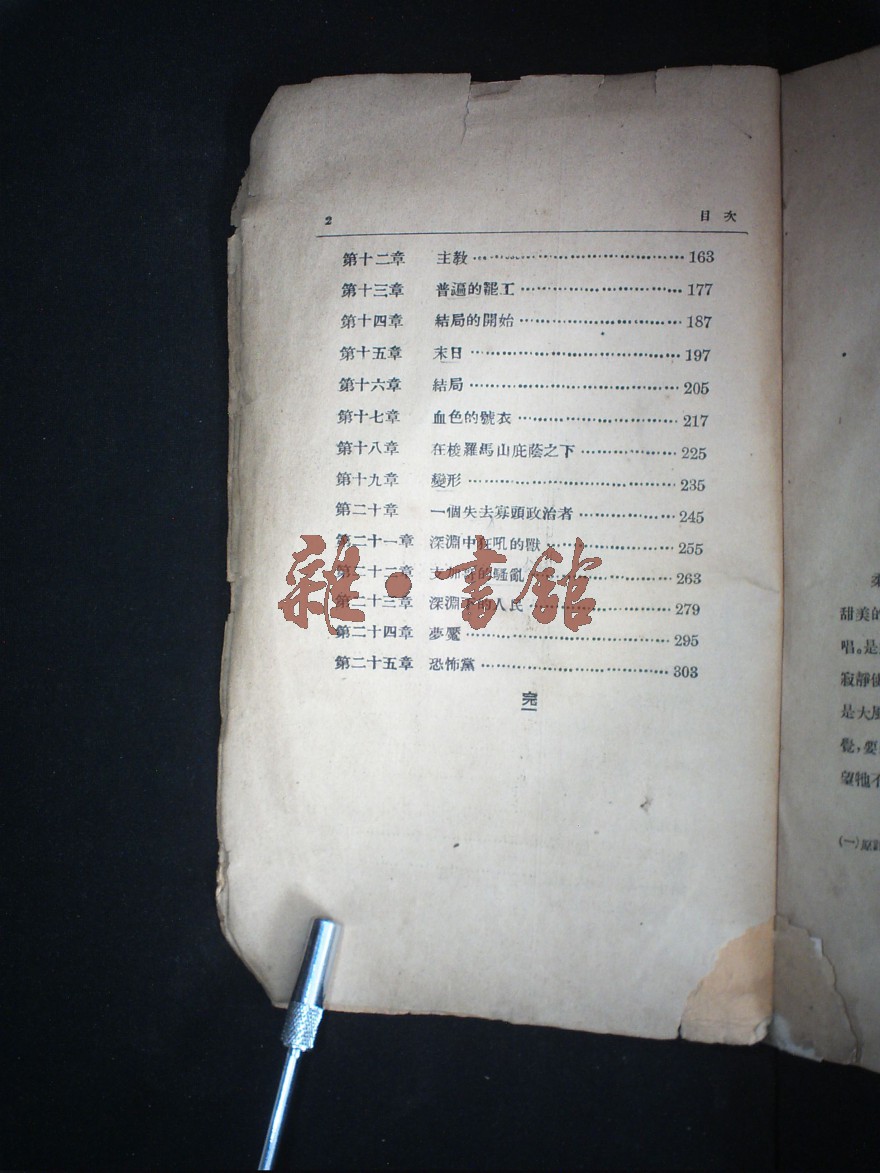 2 目次
第十二章 主教…………………………163
第十三章 普遍的罷工…………………………177
第十四章 結局的開始…………………………187
第十五章 末日…………………………197
第十六章 結局…………………………205
第十七章 血色的號衣…………………………217
第十八章 在梭羅馬山庇蔭之下………………225
第十九章 變形…………………………235
第二十章 一個失去寡頭政治者………………245
第二十一章 深淵中狂吼的獸…………………255
第二十二章 支加哥的騷亂…………………263
第二十三章 深淵下的人民…………………279
第二十四章 夢魘…………………………295
第二十五章 恐怖黨…………………………303
完
雜·書館
甜美的
唱。是
寂靜
是大風
覺,要
望牠不
(一)原註